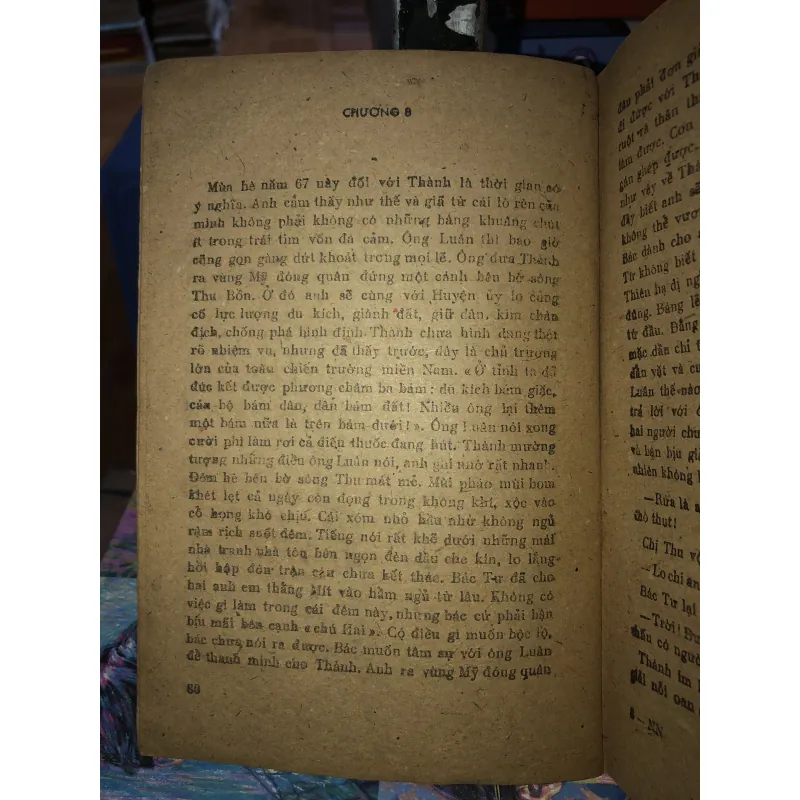 CHƯƠNG 8
Mùa hè năm 67 này đối với Thành là thời gian có
ý nghĩa. Anh cảm thấy như thế và giã từ cái lò rèn của
mình không phải không có những bâng khuâng chút
ít trong trái tim vốn đa cảm. Ông Luân thì bao giờ
cũng gọn gàng dứt khoát trong mọi lẽ. Ông đưa Thành
ra vùng Mỹ đóng quân đứng một cánh bên bờ sông
Thu Bồn. Ở đó anh sẽ cùng với Huyện ủy lo củng
cố lực lượng du kích, giành đất, giữ dân, kìm chân
địch, chống phá bình định Thành chưa hình dung thật
rõ nhiệm vụ, nhưng đã thấy trước, đây là chủ trương
lớn của toàn chiến trường miền Nam. « Ở tỉnh ta đã
đúc kết được phương châm ba bám: du kích bám giặc,
cán bộ bám dân, dân bám đất! Nhiều ông lại thêm
một bám nữa là trên bám dưới! ». Ông Luân nói xong
cười phì làm rơi cả điếu thuốc đang hút. Thành mường
tượng những điều ông Luân nói, anh ghi nhớ rất nhanh.
Đêm hè bên bờ sông Thu mát mẻ. Mùi pháo mùi bom
khét lẹt cả ngày còn đọng trong không khí, xộc vào
cổ họng khó chịu. Cái xóm nhỏ hầu như không ngủ
rậm rịch suốt đêm. Tiếng nói rất khẽ dưới những mái
nhà tranh nhà tôn bên ngọn đèn dầu che kín, lo lắng
hồi hộp đón trận càn chưa kết thúc. Bác Tư đã cho
hai anh em thằng Mít vào hầm ngủ từ lâu. Không có
việc gì làm trong cái đêm này, nhưng bác cứ phải bận
bịu mãi bên cạnh « chú Hai ». Có điều gì muốn bộc lộ,
bác chưa nói ra được. Bác muốn tâm sự với ông Luân
để thanh minh cho Thành. Anh ra vùng Mỹ đóng quân
đâu phải đơn
đi được với
ruột và thân
làm được. Con
gán ghép được.
như vậy về
đây biết anh sẽ
không thể
Bác dành cho
Tư không biết
Thiên hạ dị
đúng. Bảng lẽ
từ đầu. Đằng
mặc dần chỉ
dằn vặt và
Luân thế nào
trả lời với
hai người
và bận bịu
nhiên không
—Rứa là
chó thut!
Chị Thu
—Lo chi
Bác Tư lại
—Trời!
thấu có
Thành im
giải nỗi oan
8 — NN